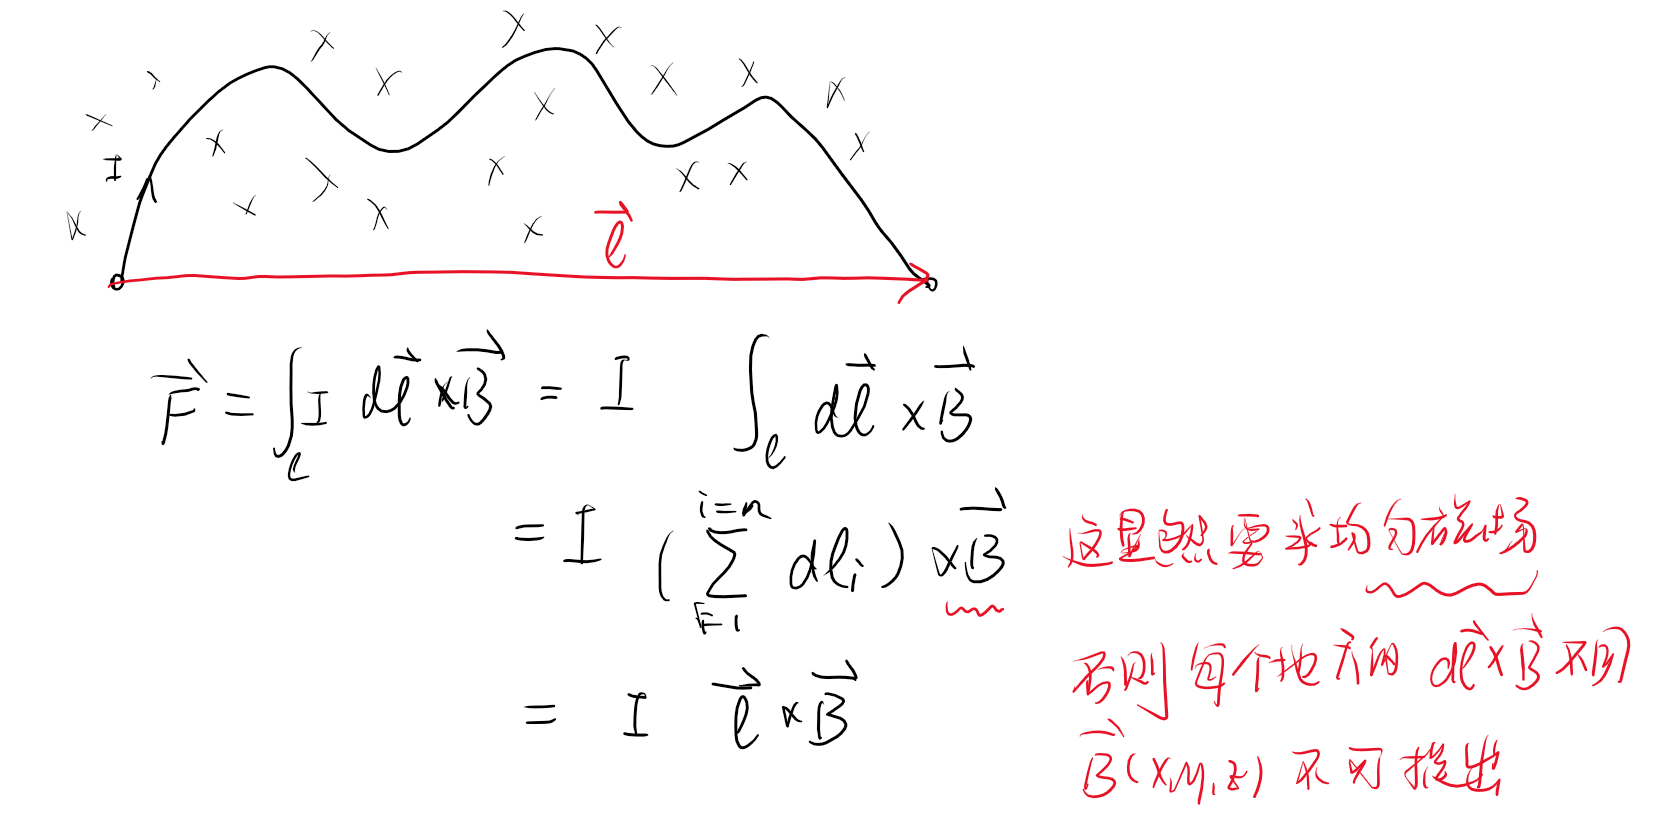 I
\vec{l}
\vec{F} = \int_l I d\vec{l} \times \vec{B} = I \int_l d\vec{l} \times \vec{B}
= I ( \sum_{i=1}^{i=n} dl_i ) \times \vec{B} 这显然要求均匀磁场
否则每个地方的 d\vec{l} \times \vec{B} 不同
= I \vec{l} \times \vec{B}
\vec{B}(x,y,z) 不可提出